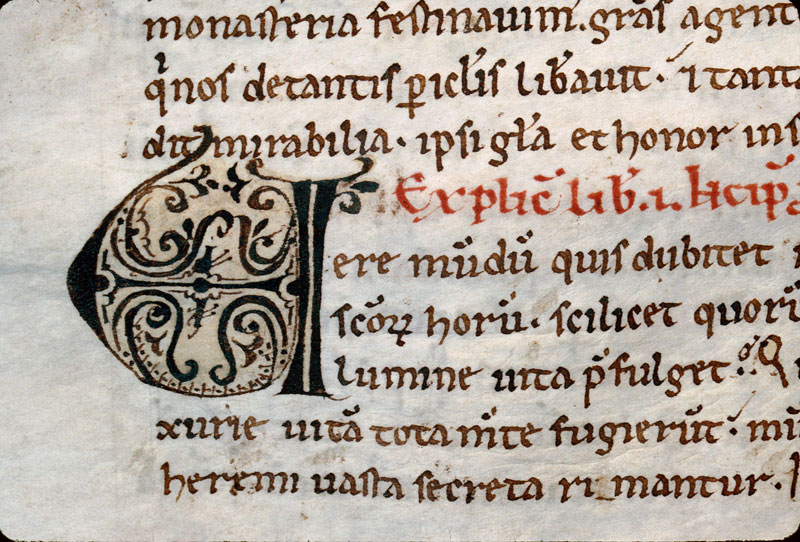 monasteria festinauim. gr̅as agent
q̓nos detantis ꝑicl̅is lib̅auit. i tanta
dit mirabilia. ipsi gl̅a et honor ins
Explic̅ lib̅. i. Incip̅
Uere mūdū quis dubitet
sc̅oꝝ horū. scilicet quorū
lumine uita p̅fulget. Q
xurie uitā tota m̅te fugierūt. mū
heremi uasta secreta rimantur.